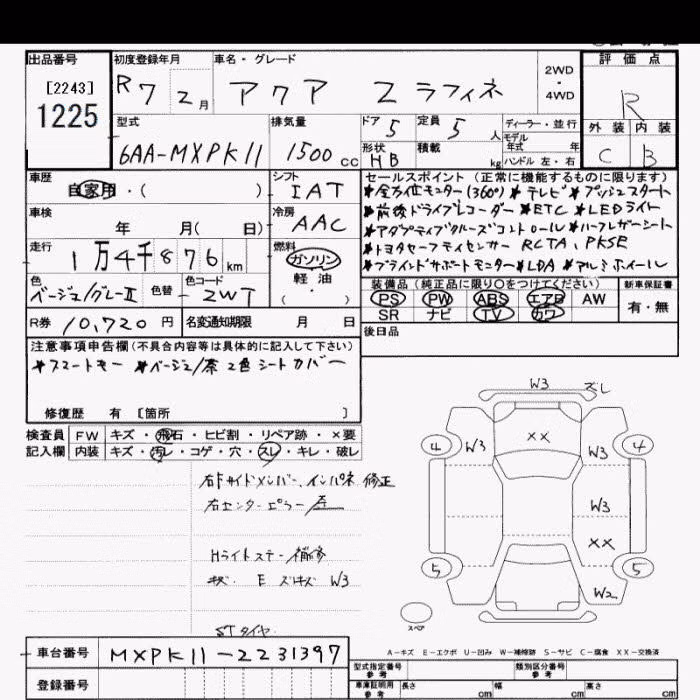 出品番号
[2243]
1225
初度登録年月
R7 2月
車名・グレード
アクア Z ラフィネ
2WD
・
4WD
評価点
R
外装 内装
C B
型式
6AA-MXPK11
排気量
1500cc
ドア 5
定員 5人
形状 HB
積載 kg
ディーラー・並行
モデル
年式 年
ハンドル 左・右
車歴
自家用・( )
シフト
IAT
車検
年 月( 日)
冷房
AAC
走行
1万4千876km
燃料
ガソリン
軽油
色
ベージュ/グレーⅡ
色替
色コード
2WT
R券 10,720円
名変通知期限 月 日
セールスポイント(正常に機能するものに限ります)
*全方位モニター(360°) *テレビ *プッシュスタート
*前後ドライブレコーダー *ETC *LEDライト
*アダプティブクルーズコントロール *ハーフレザーシート
*トヨタセーフティセンサー RCTA、PKSB
*ブラインドサポートモニター *LDA *アルミホイール
装備品(純正品に限り○をつけてください)
PS PW ABS エアB AW
SR ナビ TV カワ
新車保証書
有・無
後日品
注意事項申告欄(不具合内容等は具体的に記入して下さい)
*スマートキー *ベージュ/茶2色シートカバー
修復歴 有 [箇所 ]
検査員 FW キズ・飛石・ヒビ割・リペア跡・×要
記入欄 内装 キズ・汚レ・コゲ・穴・スレ・キレ・破レ
右Fサイドメンバー、インパネ 修正
右センターピラー
Hライトステー補修
キズ. E ズレキズ W3
STタイヤ
W3 ズレ
4 W3 ×× W3 4
W3
××
5 5
W2
スペア
A-キズ E-エクボ U-凹み W-補修跡 S-サビ C-腐食 XX-交換済
車台番号 MXPK11-2231397
登録番号
型式指定番号
参考
類別区分番号
参考
車庫証明用
参考
長さ cm 幅 cm 高さ cm